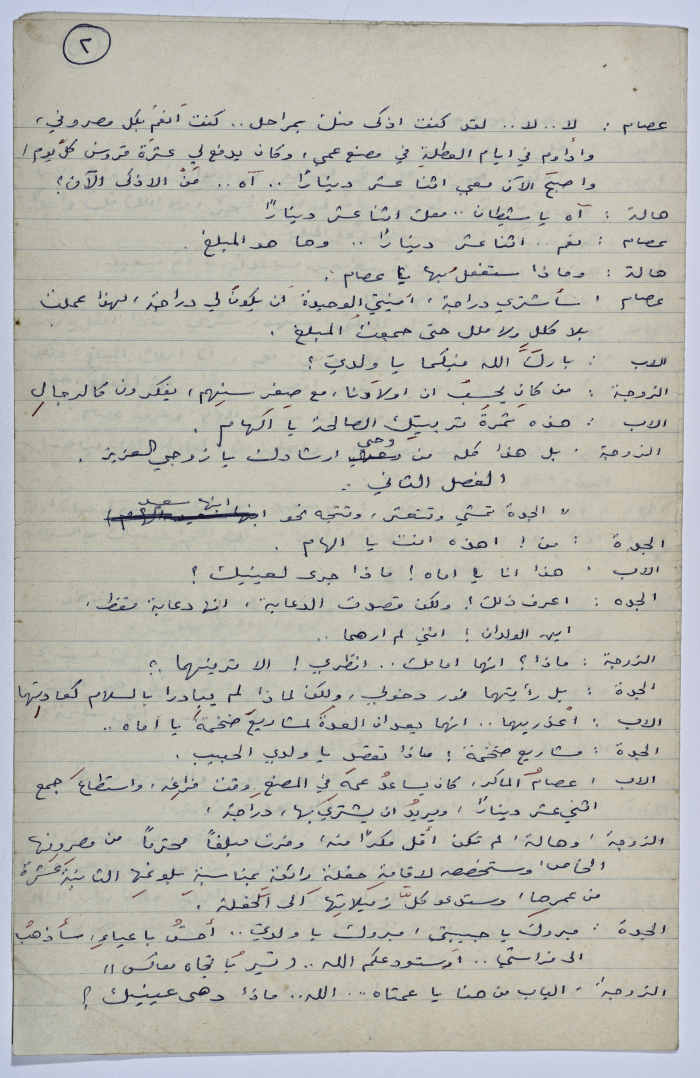 ٢
عصام : لا .. لا .. لقد كنت اذكى منك بمراحل .. كنت أنعم بكل مصروفي،
واداوم في ايام العطلة في مصنع عمي، وكان يدفع لي عشرة قروش كل يوم!
واصبح الآن معي اثنا عشر دينارًا .. آه .. مَنْ الاذكى الآن؟
هالة : آه يا شيطان .. معك اثنا عشر دينارًا
عصام : نعم .. اثنا عشر دينارًا .. وها هو المبلغ .
هالة : وماذا ستفعل بها يا عصام ؟
عصام : سأشتري دراجة، أمنيتي الوحيدة أن يكون لي دراجة، لهذا عملت
بلا كلل ولا ملل حتى جمعت المبلغ .
الاب : باركَ الله فيكما يا ولديّ ؟
الزوجة : من كان يحسبُ ان اولادنا، مع صغر سنهم، يفكرون كالرجالِ
الاب : هذه ثمرةُ تربيتكِ الصالحة يا الهام .
الزوجة : بل هذا كله من وحي ارشادك يا زوجي العزيز .
الفصل الثاني :
" الجدة تمشي وتتعثر، وتتجه نحو ابنها سعيد
الجدة : من ! اهذه انت يا الهام .
الاب : هذا انا يا اماه ! ماذا جرى لعينيك ؟
الجده : اعرف ذلك ! ولكن قصدت الدعابة ، انها دعابة فقط ،
اين الولدان ! انني لم ارهما ..
الزوجة : ماذا ؟ انهما امامك .. انظري ! الا ترينهما ؟
الجدة : بل رأيتهما فور دخولي، ولكن لماذا لم يبادرا بالسلام كعادتهما
الاب : أعذريهما .. انهما يعدان العدةَ لمشاريعَ ضخمةٍ يا اماه ..
الجدة : مشاريع ضخمة ؟ ماذا تقصد يا ولدي الحبيب .
الاب : عصامُ الماكر، كان يساعدُ عمه في المصنع وقت فراغه، واستطاعَ جمع
اثني عشر دينارًا، ويريدُ ان يشتريَ بها، دراجة ،
الزوجة : وهالة ! لم تكن أقل مكرًا منه، وفرت مبلغًا محترمًا من مصروفها
الخاص، وستخصصه لاقامةِ حفلة رائعة بمناسبةِ بلوغها الثانيةَ عشرةَ
من عمرها، وستدعو كلَّ زميلاتِها الى الحفلة .
الجدة : مبروك يا حبيبتي، مبروك يا ولديّ .. أحسُّ باعياءٍ، سأذهبُ
الى فراشي .. أستودعكم الله .. ( تسيرُ باتجاه معاكس ))
الزوجة : الباب من هنا يا عمتاه .. الله .. ماذا دهى عينيك ؟